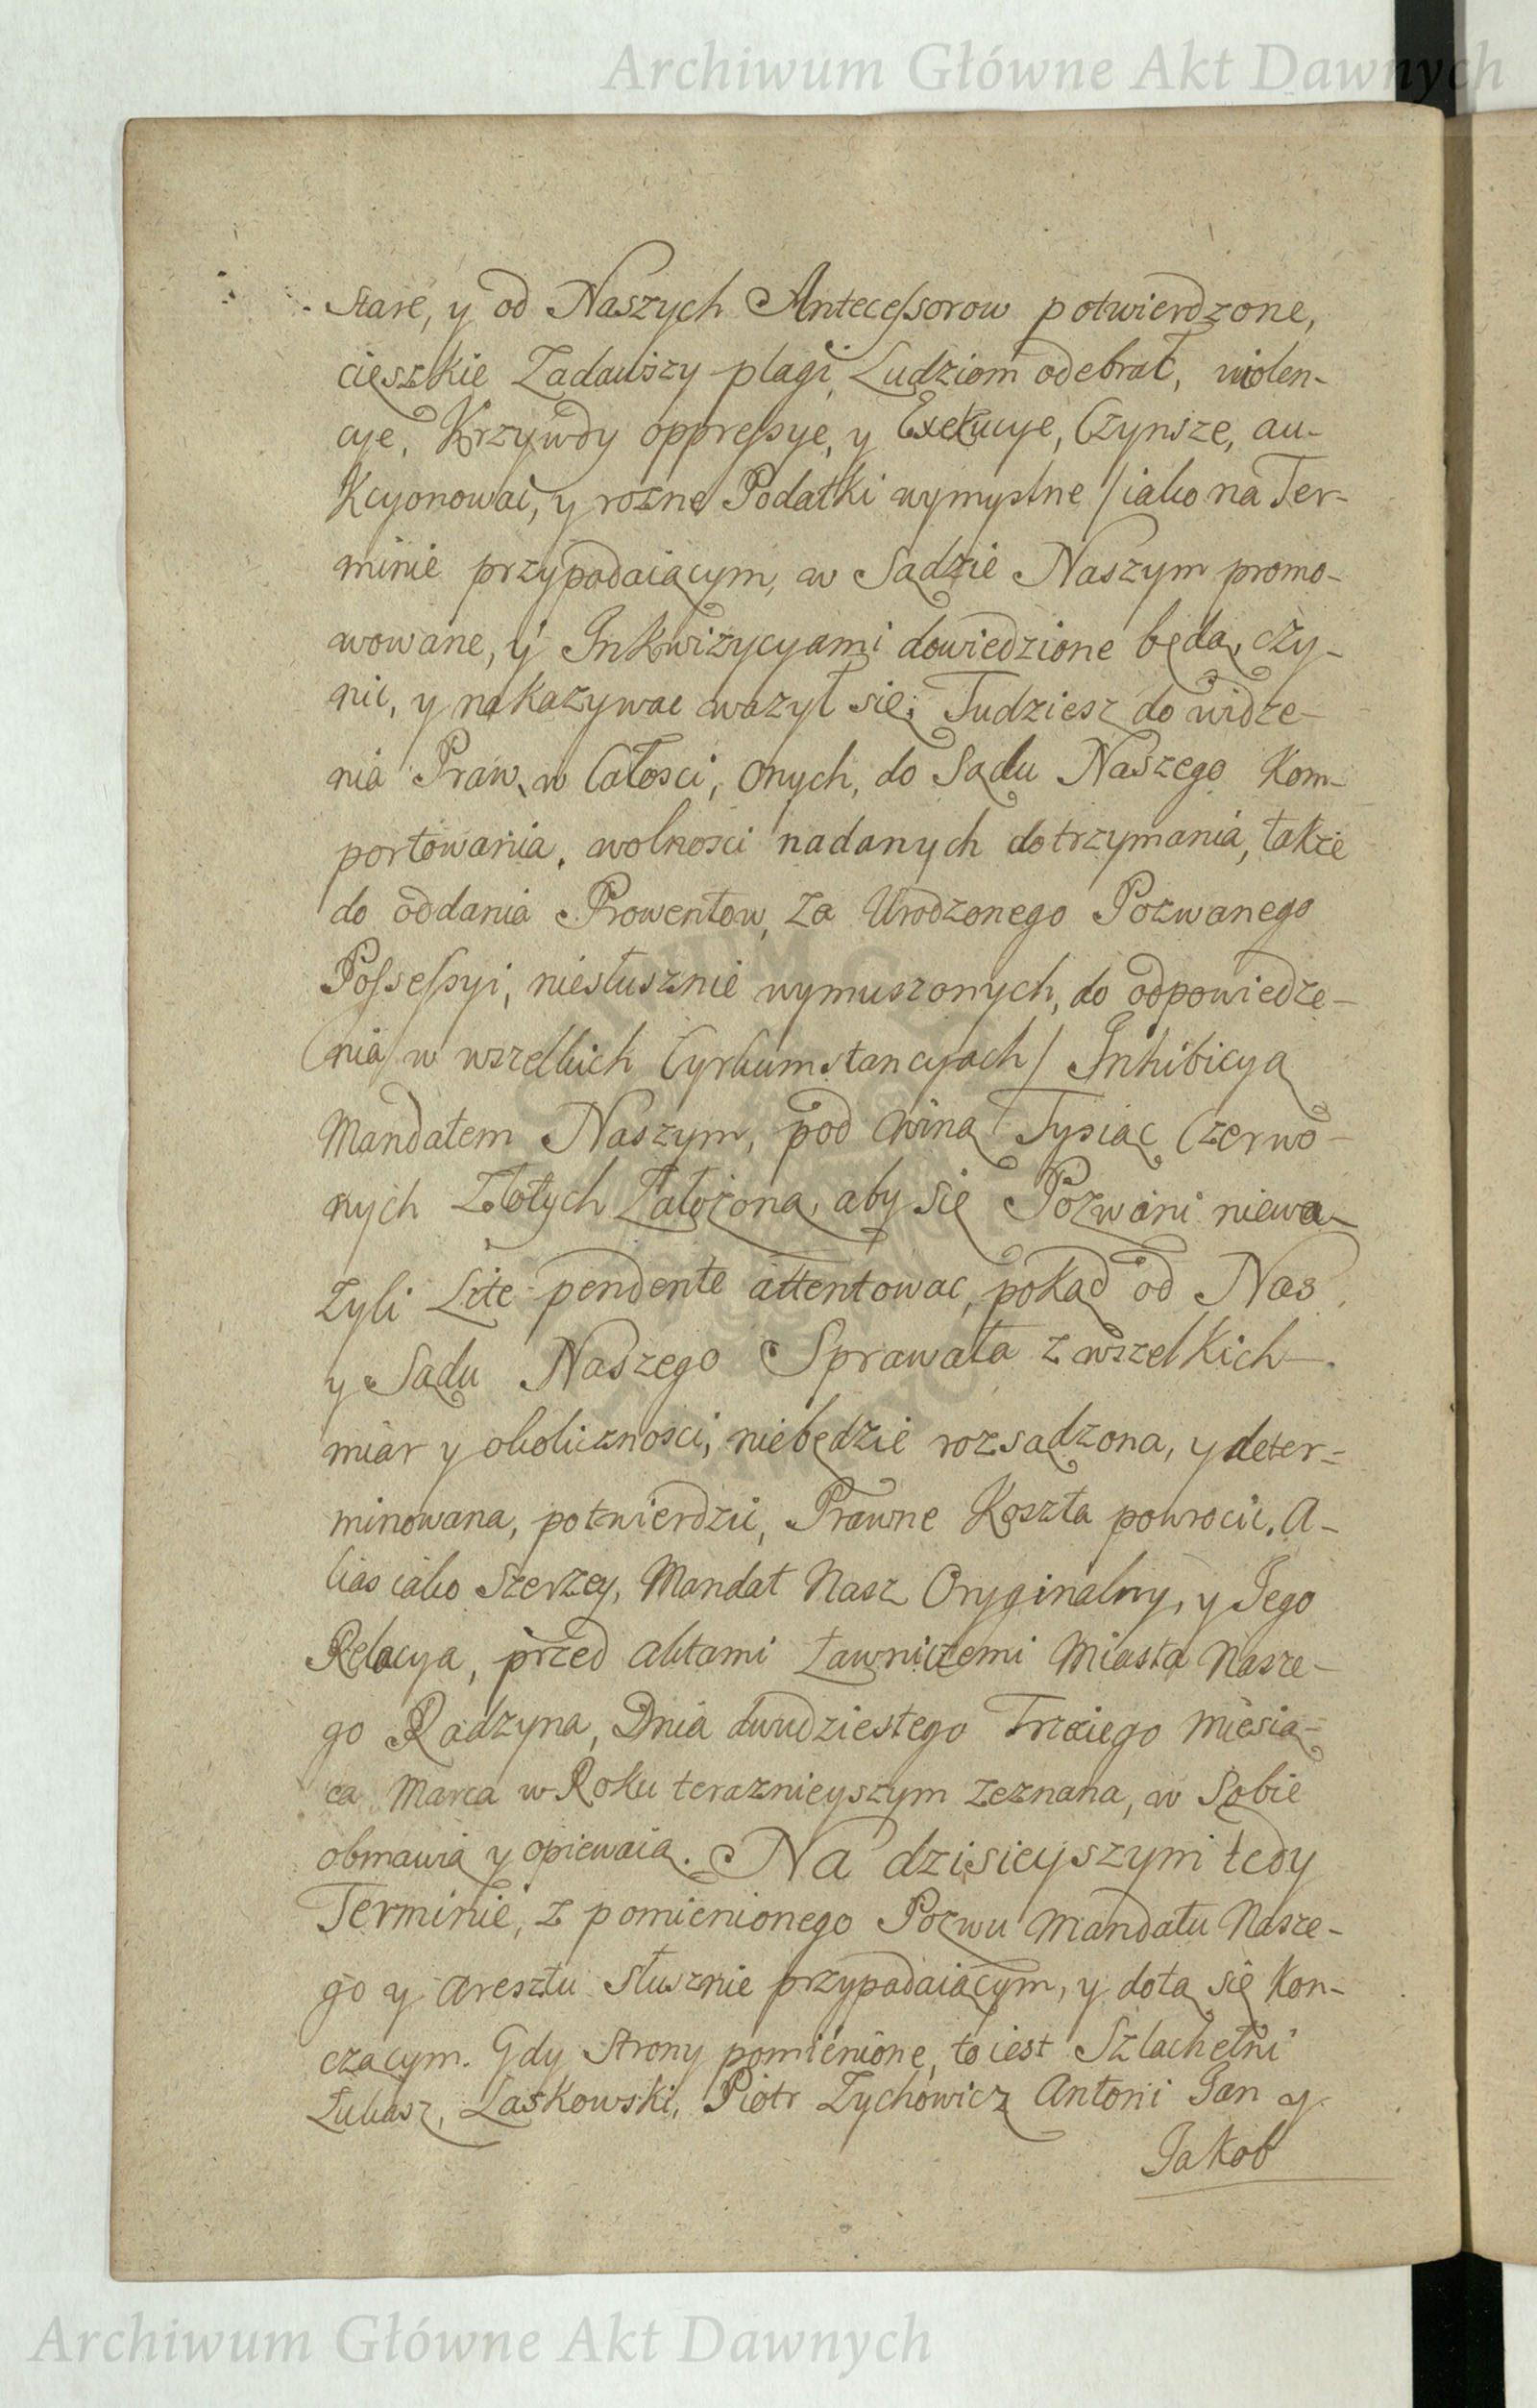 Archiwum Główne Akt Dawnych
Stare, y od Naszych Antecessorow potwierdzone,
cięszkie Zadawszy plagi, Ludziom odebrał, wiolen-
cye, Krzywdy oppressye, y Exekucye, Czynsze, au-
kcyonować, y rozne Podatki wymyslne /iako na Ter-
minie przypadaiącym, w Sądzie Naszym promo-
wowane, y Inkwizycyami dowiedzione będą, czy-
nić, y nakazywac ważył się; Tudziesz do widze-
nia Praw, w Całosci, onych, do Sądu Naszego Kom-
portowania, wolnosci nadanych dotrzymania, także
do oddania Prowentow, za Urodzonego Pozwanego
Possessyi, niesłusznie wymuszonych, do odpowiedze-
nia/ w wszelkich Cyrkumstancyach/ Inhibicyą
Mandatem Naszym, pod winą Tysiąc Czerwo-
nych Złotych Załozoną, aby się Pozwani niewa-
zyli Lite pendente attentowac, pokąd od Nas
y Sądu Naszego Sprawata z wszelkich
miar y okolicznosci, niebędzie rozsądzona, y deter-
minowana, potwierdzić, Prawne Koszta powrocić. A-
lias iako Szerzey, Mandat Nasz Oryginalny, y Jego
Relacya, przed Aktami Ławniczemi Miasta Nasze-
go Radzyna, Dnia dwudziestego Trzeciego Miesią-
ca Marca w Roku teraznieyszym zeznana, w Sobie
obmawia y opiewaią. Na dzisieyszym tedy
Terminie, z pomienionego Pozwu Mandatu Nasze-
go y Aresztu Słusznie przypadaiącym, y dotą się Kon-
czącym. Gdy Strony pomienione, to iest Szlachetni
Łukasz, Laskowski, Piotr Zychowicz Antoni Jan y
Jakob
Archiwum Główne Akt Dawnych